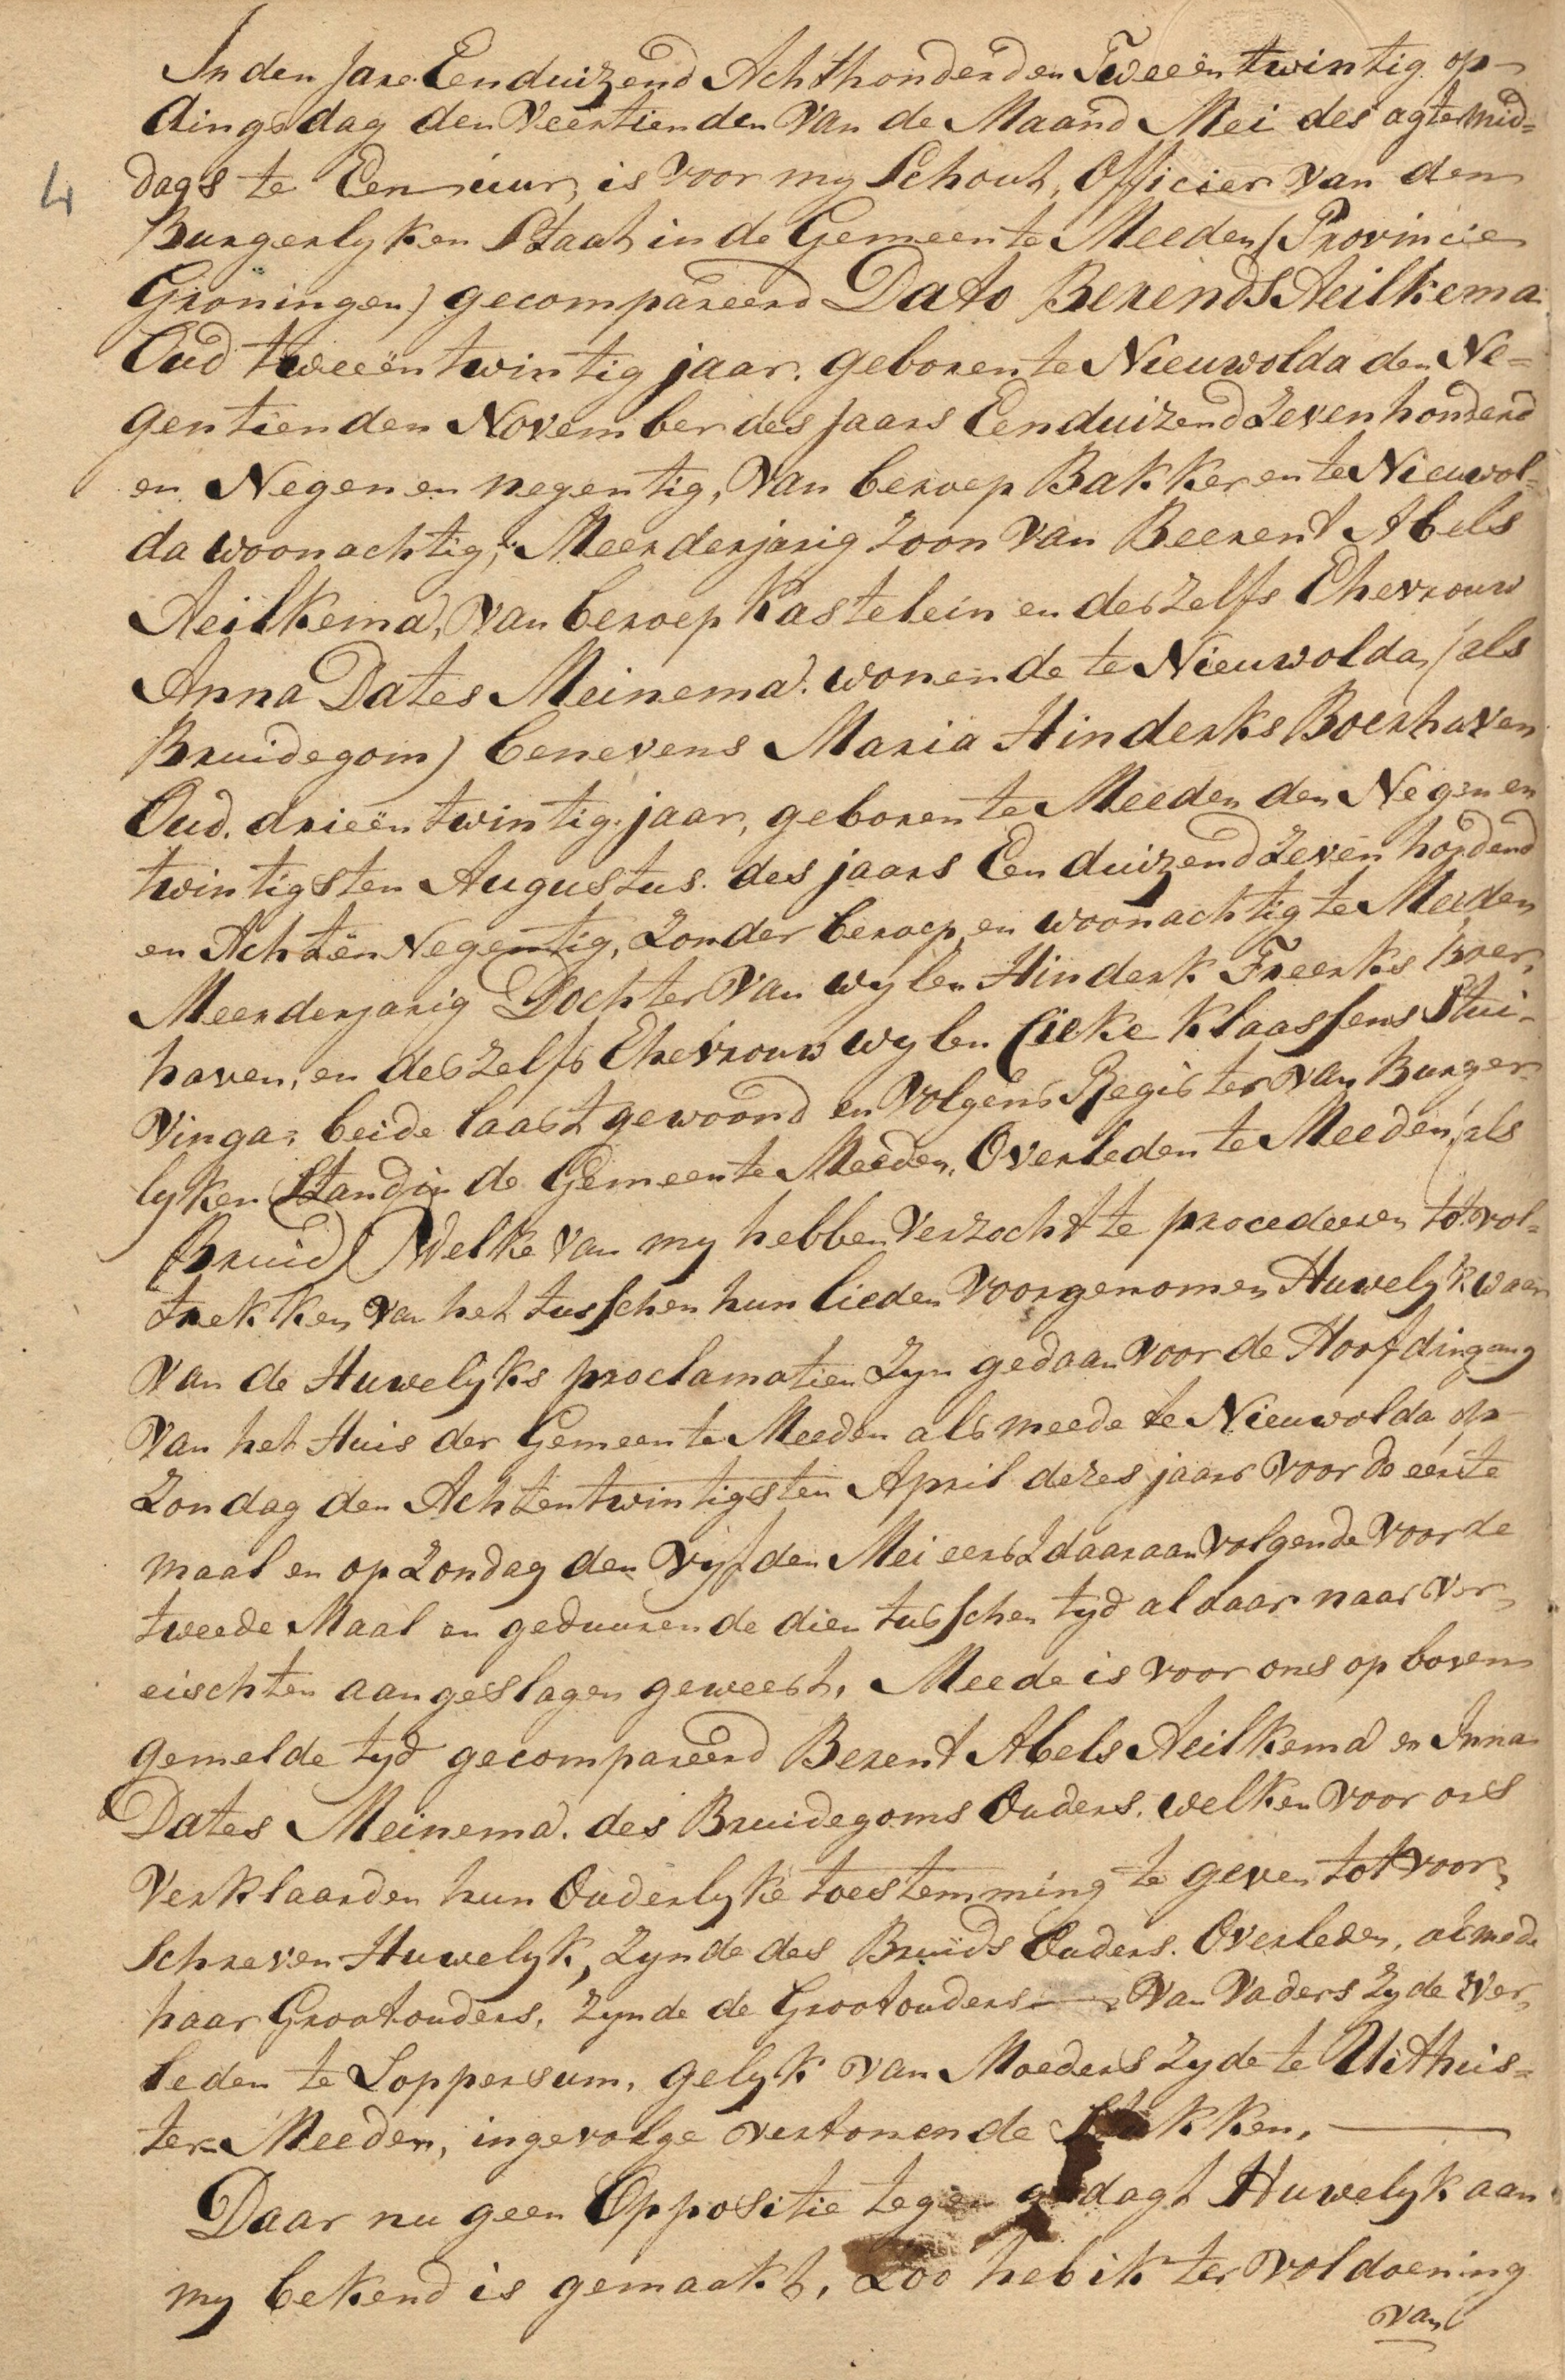 In den Jare Eenduizend Achthonderd en Tweeëntwintig op
dingsdag den Veertienden van de Maand Mei des agtermid=
4
dags te Een uur, is voor my Schout, Officier van den
Burgerlyken Staat in de Gemeente Meeden (Provincie
Groningen) gecompareerd Dato Berends Aeilkema
Oud tweeëntwintig jaar, geboren te Nieuwolda den Ne=
gentienden November des Jaars Eenduizend Zevenhonderd
en Negenennegentig, van beroep Bakker en te Nieuwol=
da woonachtig; Meerderjarig Zoon van Beerent Abels
Aeilkema, van beroep Kastelein en deszelfs Ehevrouw
Anna Dates Meinema, wonende te Nieuwolda, (als
Bruidegom) benevens Maria Hinderks Boerhaven
Oud drieëntwintig jaar, geboren te Meeden den Negenen
twintigsten Augustus des jaars Eenduizend Zeven honderd
en Achtën Negentig, Zonder beroep, en woonachtig te Meeden
Meerderjarig Dochter van wylen Hinderk Freerks Boer,
haven, en deszelfs Ehevrouw wylen Klaassens Stui-
vinga, beide laast gewoond en volgens Register van Burger
lyken Stand in de Gemeente Meeden, Overleden te Meeden, (als
Bruid) Welke van my hebben verzocht te procederen tot vol=
trekken van het tusschen hun lieden voorgenomen Huwelyk waar
van de Huwelyks proclamatien Zyn gedaan voor de Hoofdingang
van het Huis der Gemeente Meeden als meede te Nieuwolda op
Zondag den Achtentwintigsten April dezes jaars voor de eerste
maal en op Zondag den Vijfden Mei eerst daaraanvolgende voor de
tweede Maal en geduurende dien tusschen tyd aldaar naar ver,
eischten aangeslagen geweest. Meede is voor ons op boven
gemelde tyd gecompareerd Berent Abels Aeilkema en Anna
Dates Meinema, des Bruidegoms Ouders, welken voor ons
verklaarden hun Ouderlyke toestemming te geven tot voor,
schreven Huwelyk, Zynde des Bruids Ouders Overleden, almede
haar Grootouders, Zynde de Grootouders van Vaders Zyde Over,
leden te Loppersum, gelyk van Moeders Zyde te Uithuis=
ter Meeden, ingevolge vertonende Stukken.
Daar nu geen Oppositie tegen gedagt Huwelyk aan
my bekend is gemaakt, Zoo heb ik ter voldoening
van